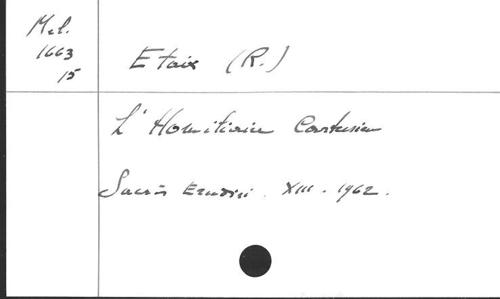 Mel.
1663
15
Etaix (R.)
L'Homiliaire Cartusien
Sacris Erudiri. XIII. 1962.